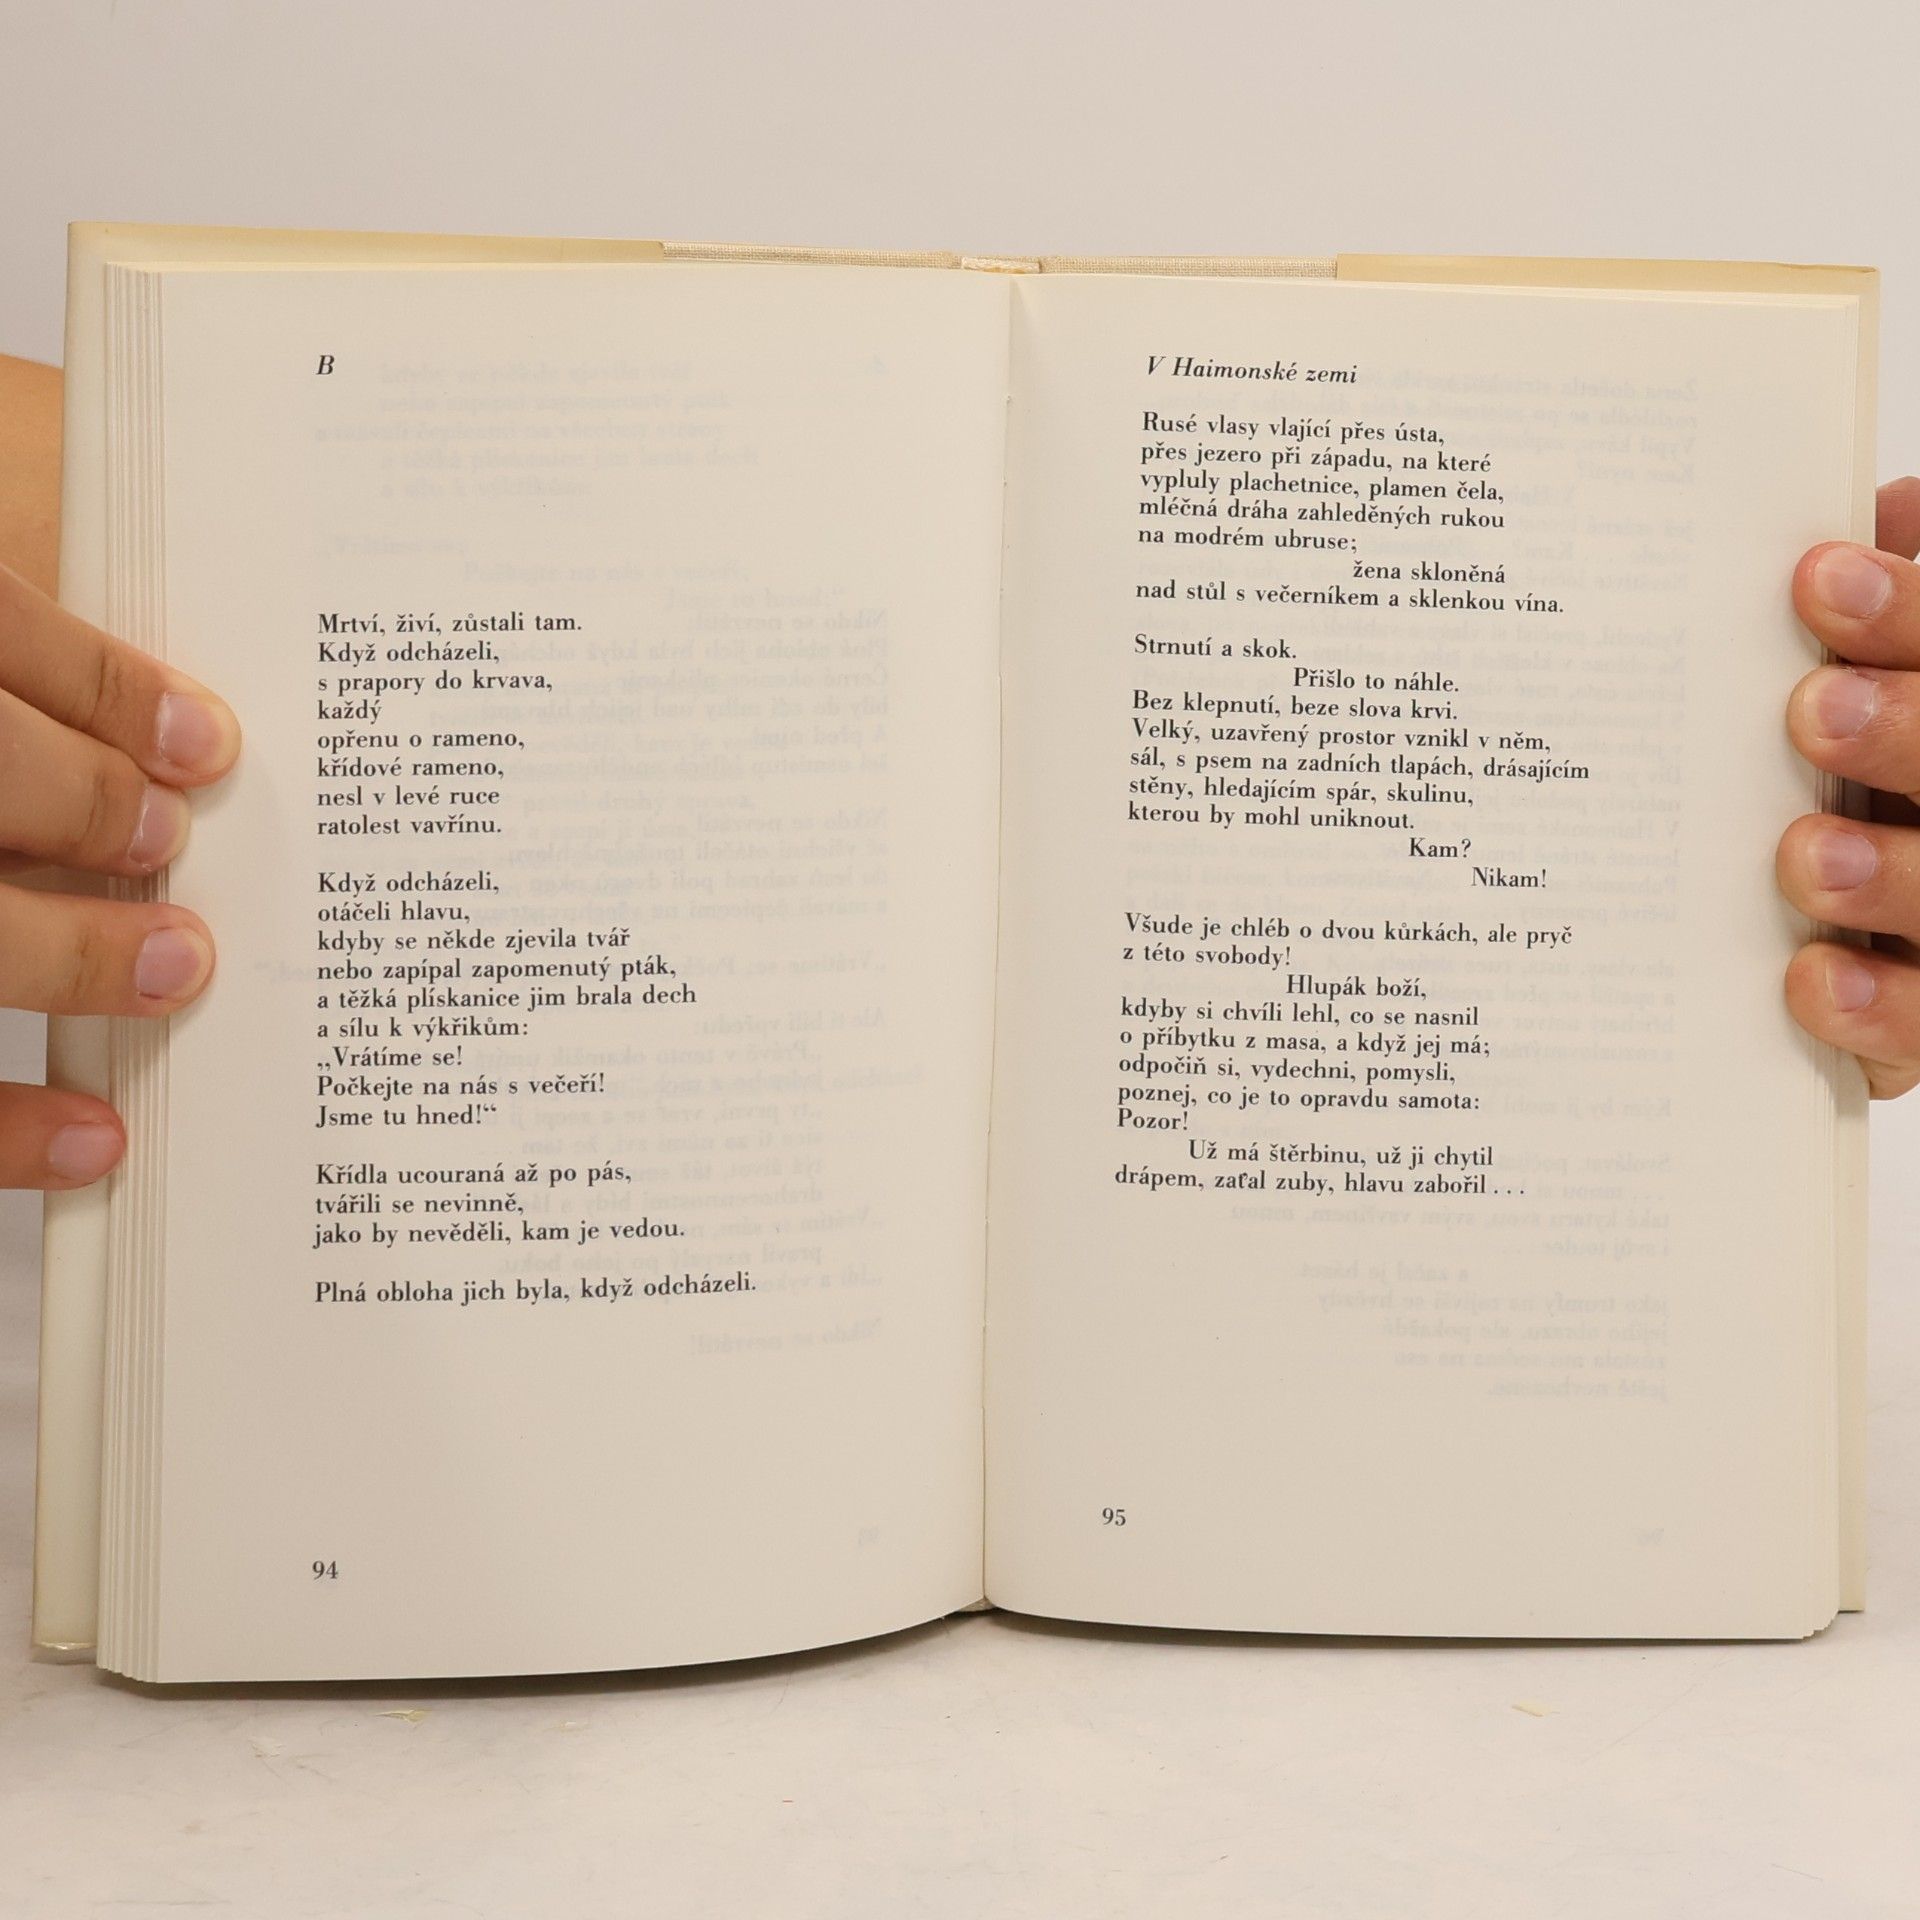 B
Mrtví, živí, zůstali tam.
Když odcházeli,
s prapory do krvava,
každý
opřenu o rameno,
křídové rameno,
nesl v levé ruce
ratolest vavřínu.
Když odcházeli,
otáčeli hlavu,
kdyby se někde zjevila tvář
nebo zapípal zapomenutý pták,
a těžká plískanice jim brala dech
a sílu k výkřikům:
„Vrátíme se!
Počkejte na nás s večeří!
Jsme tu hned!“
Křídla ucouraná až po pás,
tvářili se nevinně,
jako by nevěděli, kam je vedou.
Plná obloha jich byla, když odcházeli.
94
V Haimonské zemi
Rusé vlasy vlající přes ústa,
přes jezero při západu, na které
vypluly plachetnice, plamen čela,
mléčná dráha zahleděných rukou
na modrém ubruse;
žena skloněná
nad stůl s večerníkem a sklenkou vína.
Strnutí a skok.
Přišlo to náhle.
Bez klepnutí, beze slova krvi.
Velký, uzavřený prostor vznikl v něm,
sál, s psem na zadních tlapách, drásajícím
stěny, hledajícím spár, skulinu,
kterou by mohl uniknout.
Kam?
Nikam!
Všude je chléb o dvou kůrkách, ale pryč
z této svobody!
Hlupák boží,
kdyby si chvíli lehl, co se nasnil
o příbytku z masa, a když jej má;
odpočiň si, vydechni, pomysli,
poznej, co je to opravdu samota:
Pozor!
Už má štěrbinu, už ji chytil
drápem, zaťal zuby, hlavu zabořil . . .
95